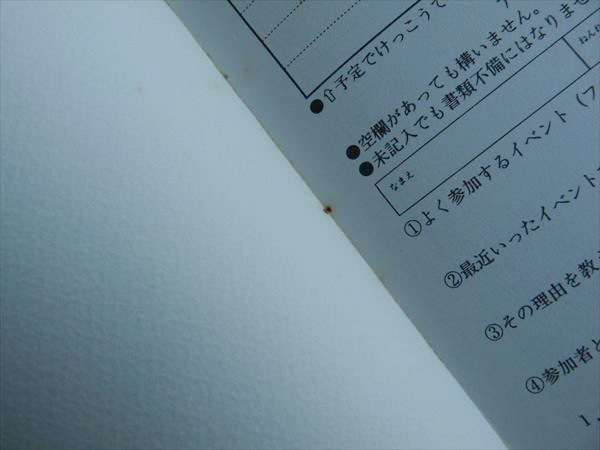 ●⇧予定でけっこうで
●空欄があっても構いません。
●未記入でも書類不備にはなりませ
なまえ
ねんれ
①よく参加するイベント（フ
②最近いったイベント
③その理由を教
④参加者と
1．